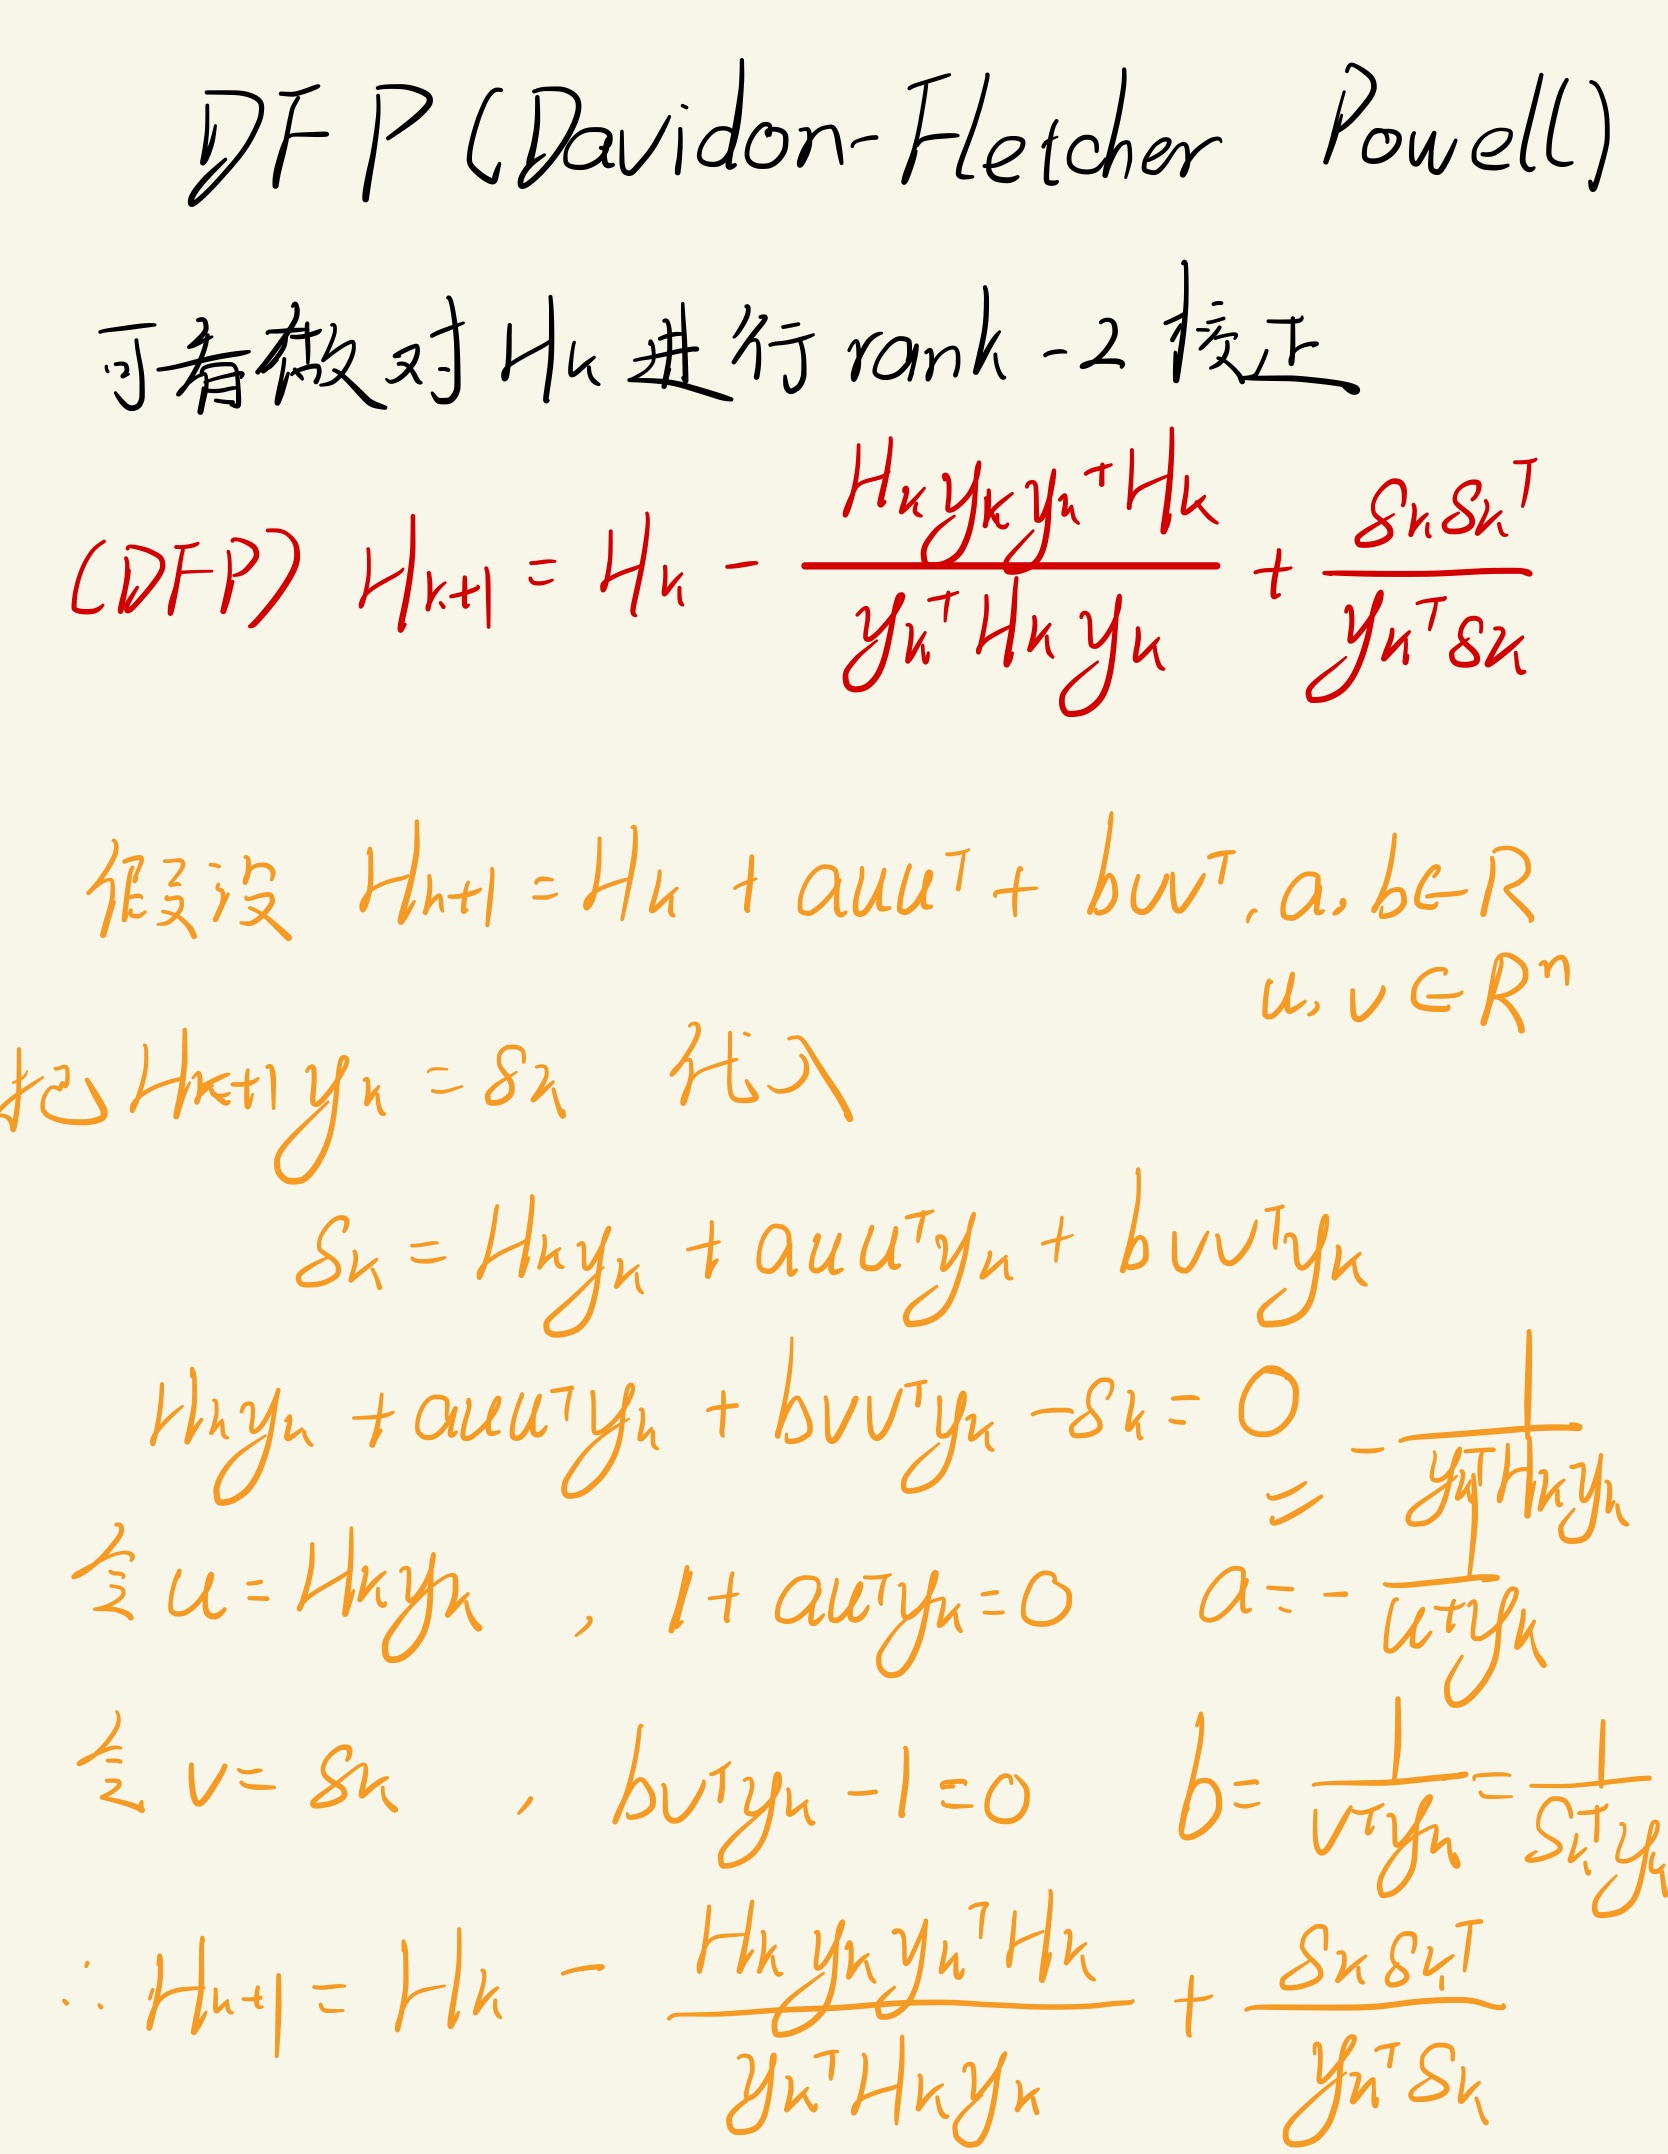 DFP (Davidon-Fletcher Powell)
可看做对 Hₖ 进行 rank-2 校正
(DFP) Hₖ₊₁ = Hₖ - (HₖyₖyₖᵀHₖ)/(yₖᵀHₖyₖ) + (sₖsₖᵀ)/(yₖᵀsₖ)
假设 Hₖ₊₁ = Hₖ + auuᵀ + bvvᵀ, a, b ∈ R
u, v ∈ Rⁿ
把 Hₖ₊₁yₖ = sₖ 代入
sₖ = Hₖyₖ + auuᵀyₖ + bvvᵀyₖ
Hₖyₖ + auuᵀyₖ + bvvᵀyₖ - sₖ = 0
令 u = Hₖyₖ , 1 + auᵀyₖ = 0 a = -1/(uᵀyₖ) = -1/(yₖᵀHₖyₖ)
令 v = sₖ , bvᵀyₖ - 1 = 0 b = 1/(vᵀyₖ) = 1/(sₖᵀyₖ)
∴ Hₖ₊₁ = Hₖ - (HₖyₖyₖᵀHₖ)/(yₖᵀHₖyₖ) + (sₖsₖᵀ)/(yₖᵀsₖ)